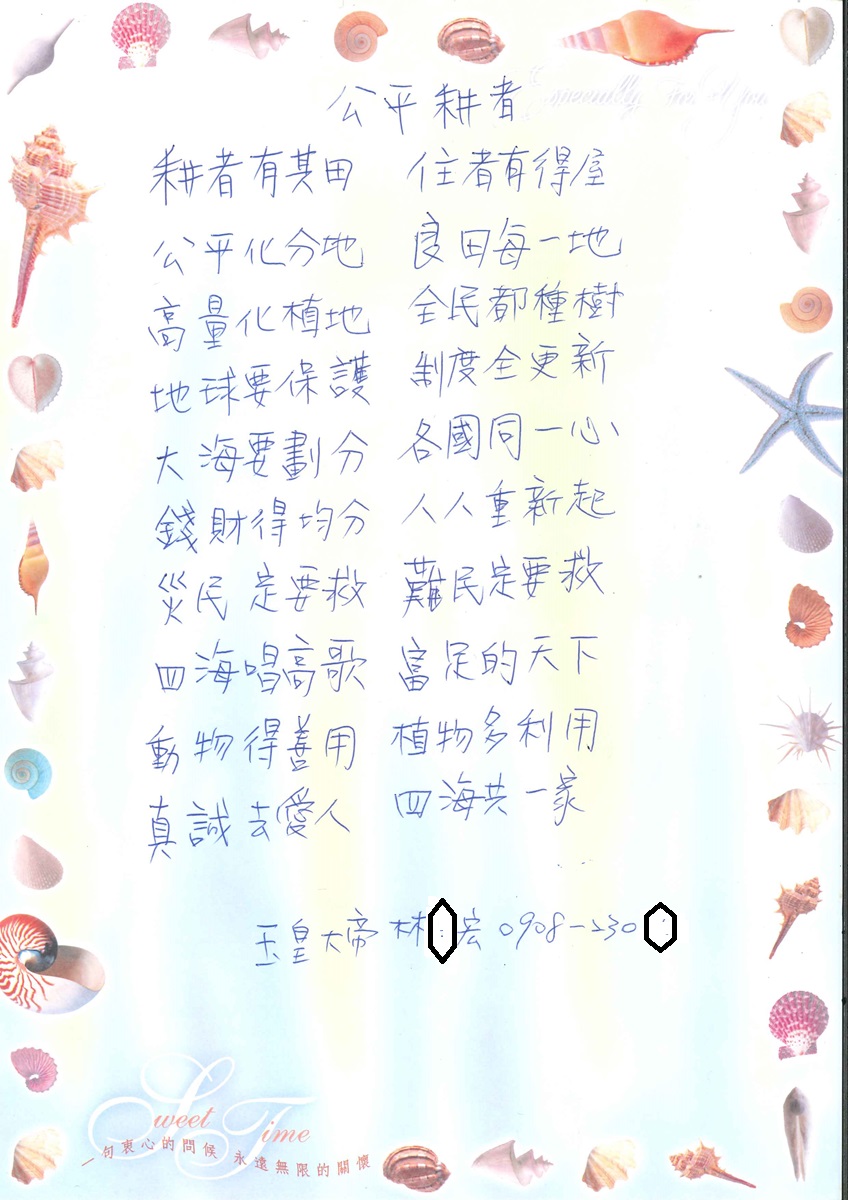 公平耕者
耕者有其田 住者有得屋
公平化分地 良田每一地
高量化植地 全民都種樹
地球要保護 制度全更新
大海要劃分 各國同一心
錢財得均分 人人重新起
災民定要救 難民定要救
四海唱高歌 富足的天下
動物得善用 植物多利用
真誠去愛人 四海共一家
玉皇大帝 林 宏 0908-230
Sweet Time
一句衷心的問候 永遠無限的關懷